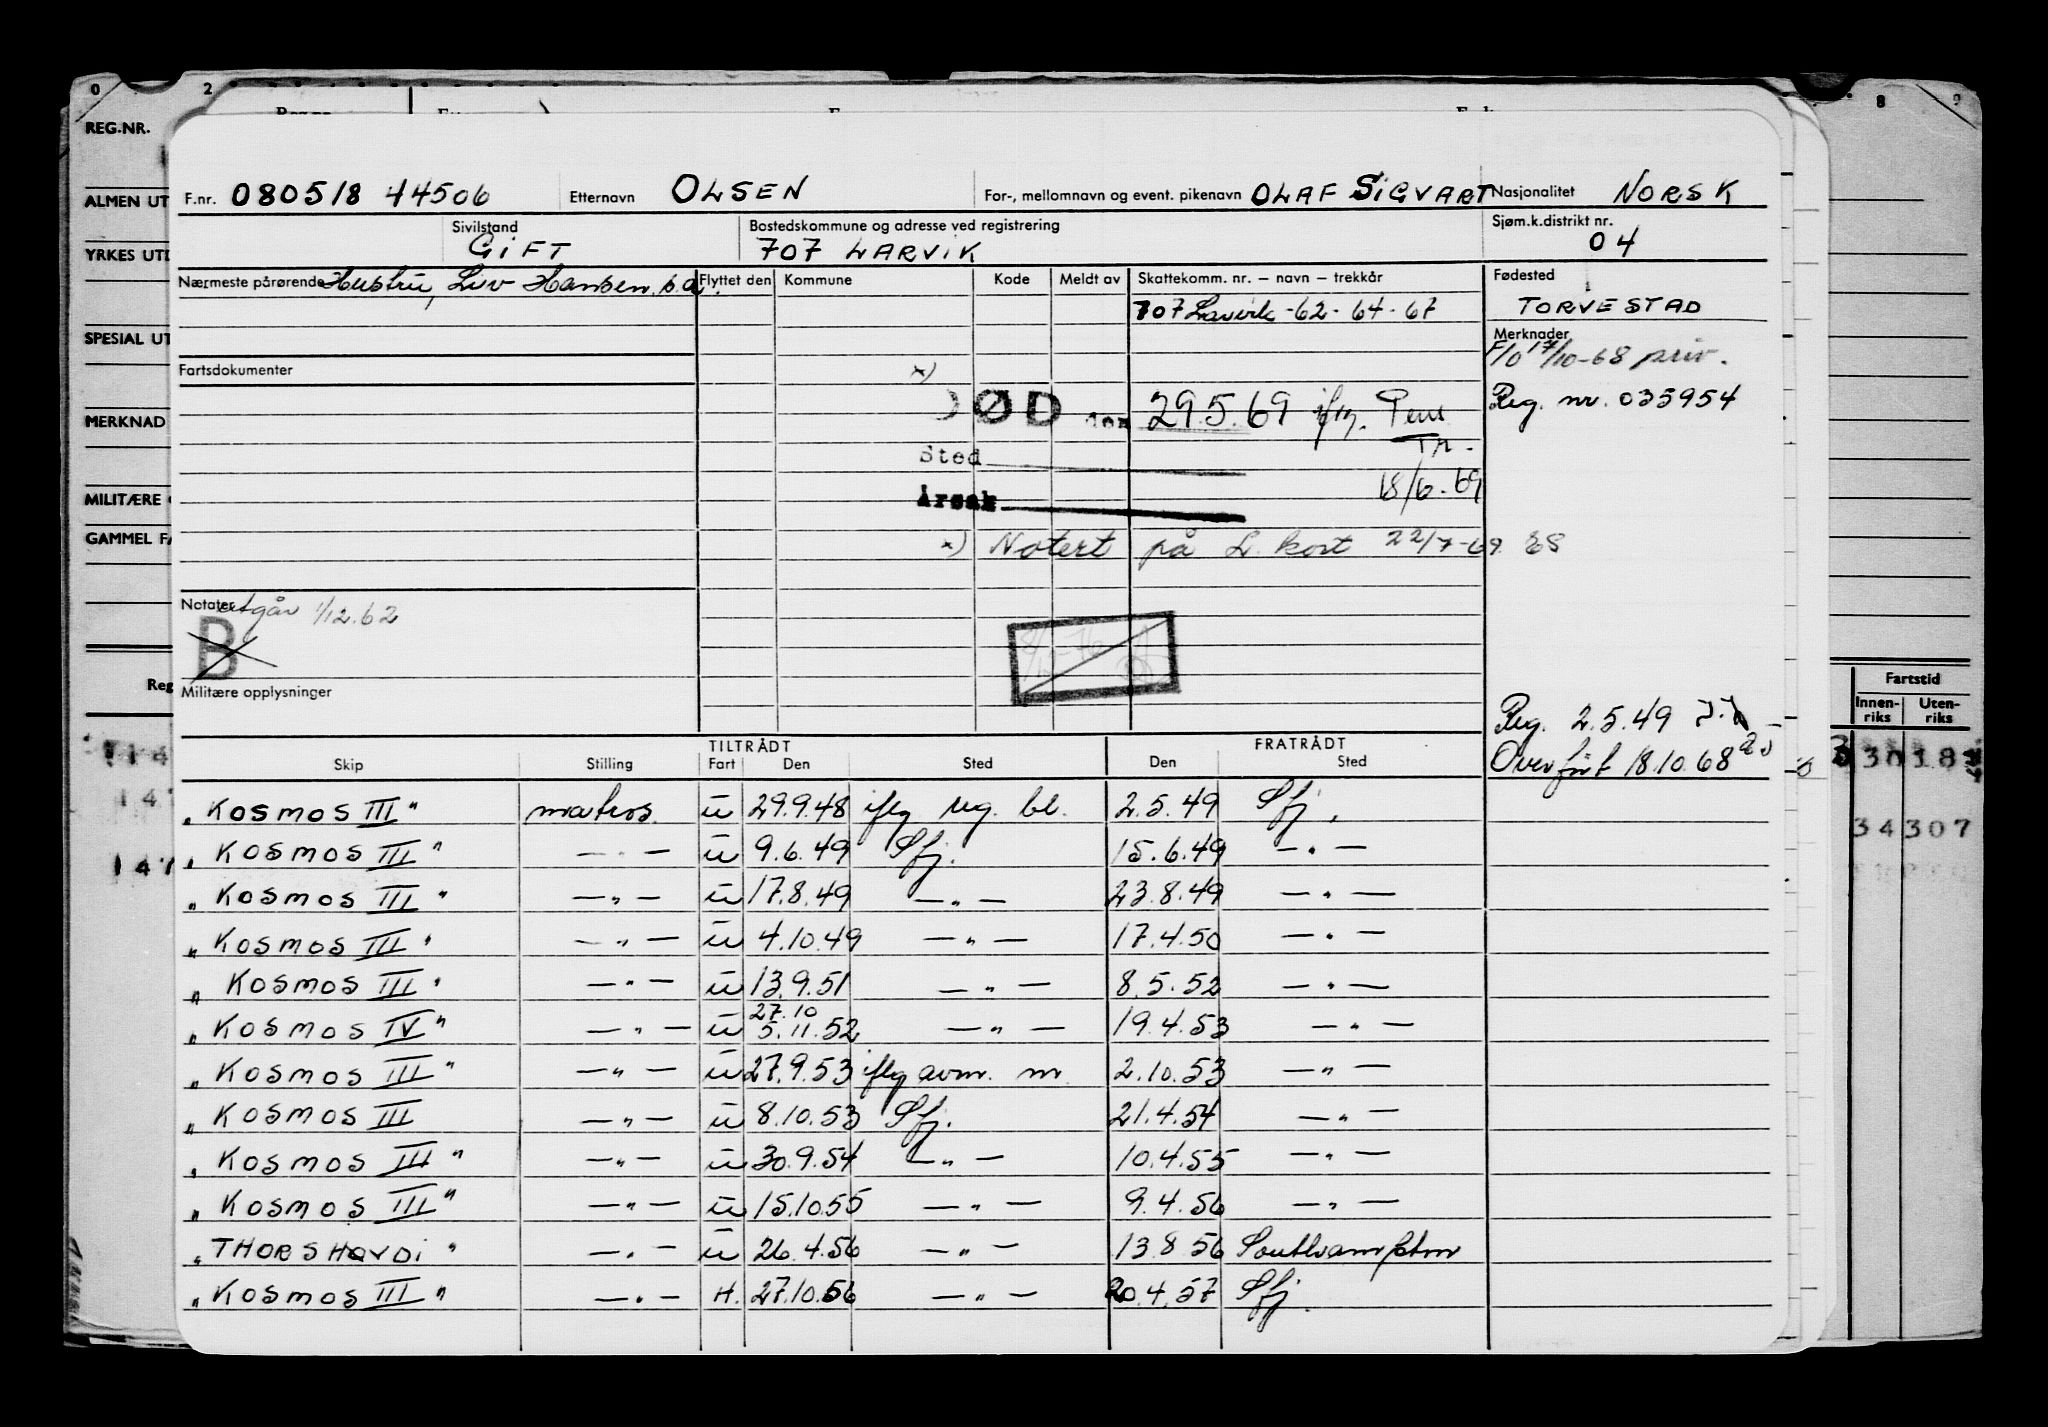 0 2 8 9
REG.NR.
F.nr. 080518 44506 Etternavn OLSEN For-, mellomnavn og event. pikenavn OLAF SIGVART Nasjonalitet NORSK
ALMEN UT
Sivilstand GIFT Bostedskommune og adresse ved registrering 707 LARVIK Sjøm.k.distrikt nr. 04
YRKES UTD
Nærmeste pårørende Hustru, Liv Hansen s.a. Flyttet den Kommune Kode Meldt av Skattekomm. nr. – navn – trekkår Fødested
707 Larvik -62-64-67 TORVESTAD
SPESIAL UT
Merknader
F/O 17/10-68 priv.
Fartsdokumenter
x)
DØD den 29.5.69 iflg. Pens Tr. Reg. nr. 035954
MERKNAD
Sted
18/6-69
MILITÆRE
Årsak
GAMMEL FA
x) Notert på L. kort 22/7-69
Notater utgår 1/12.62
B
Militære opplysninger
Reg
Reg. 2.5.49
Overført 18.10.68
Fartstid
Innen-riks Uten-riks
TILTRÅDT FRATRÅDT
Skip Stilling Fart Den Sted Den Sted
„KOSMOS III" matros. u 29.9.48 iflg reg. bl. 2.5.49 Sfj.
„KOSMOS III" — " — u 9.6.49 Sfj. 15.6.49 — " —
„KOSMOS III" — " — u 17.8.49 — " — 23.8.49 — " —
„KOSMOS III" — " — u 4.10.49 — " — 17.4.50 — " —
„KOSMOS III" — " — u 13.9.51 — " — 8.5.52 — " —
27.10
„KOSMOS IV" — " — u 5.11.52 — " — 19.4.53 — " —
„KOSMOS III" — " — u 27.9.53 iflg avm. m. 2.10.53 — " —
„KOSMOS III — " — u 8.10.53 Sfj. 21.4.54 — " —
„KOSMOS III" — " — u 30.9.54 — " — 10.4.55 — " —
„KOSMOS III" — " — u 15.10.55 — " — 9.4.56 — " —
„THORSHAVDI" — " — u 26.4.56 — " — 13.8.56 Southampton
„KOSMOS III" — " — H. 27.10.56 — " — 20.4.57 Sfj.
34307